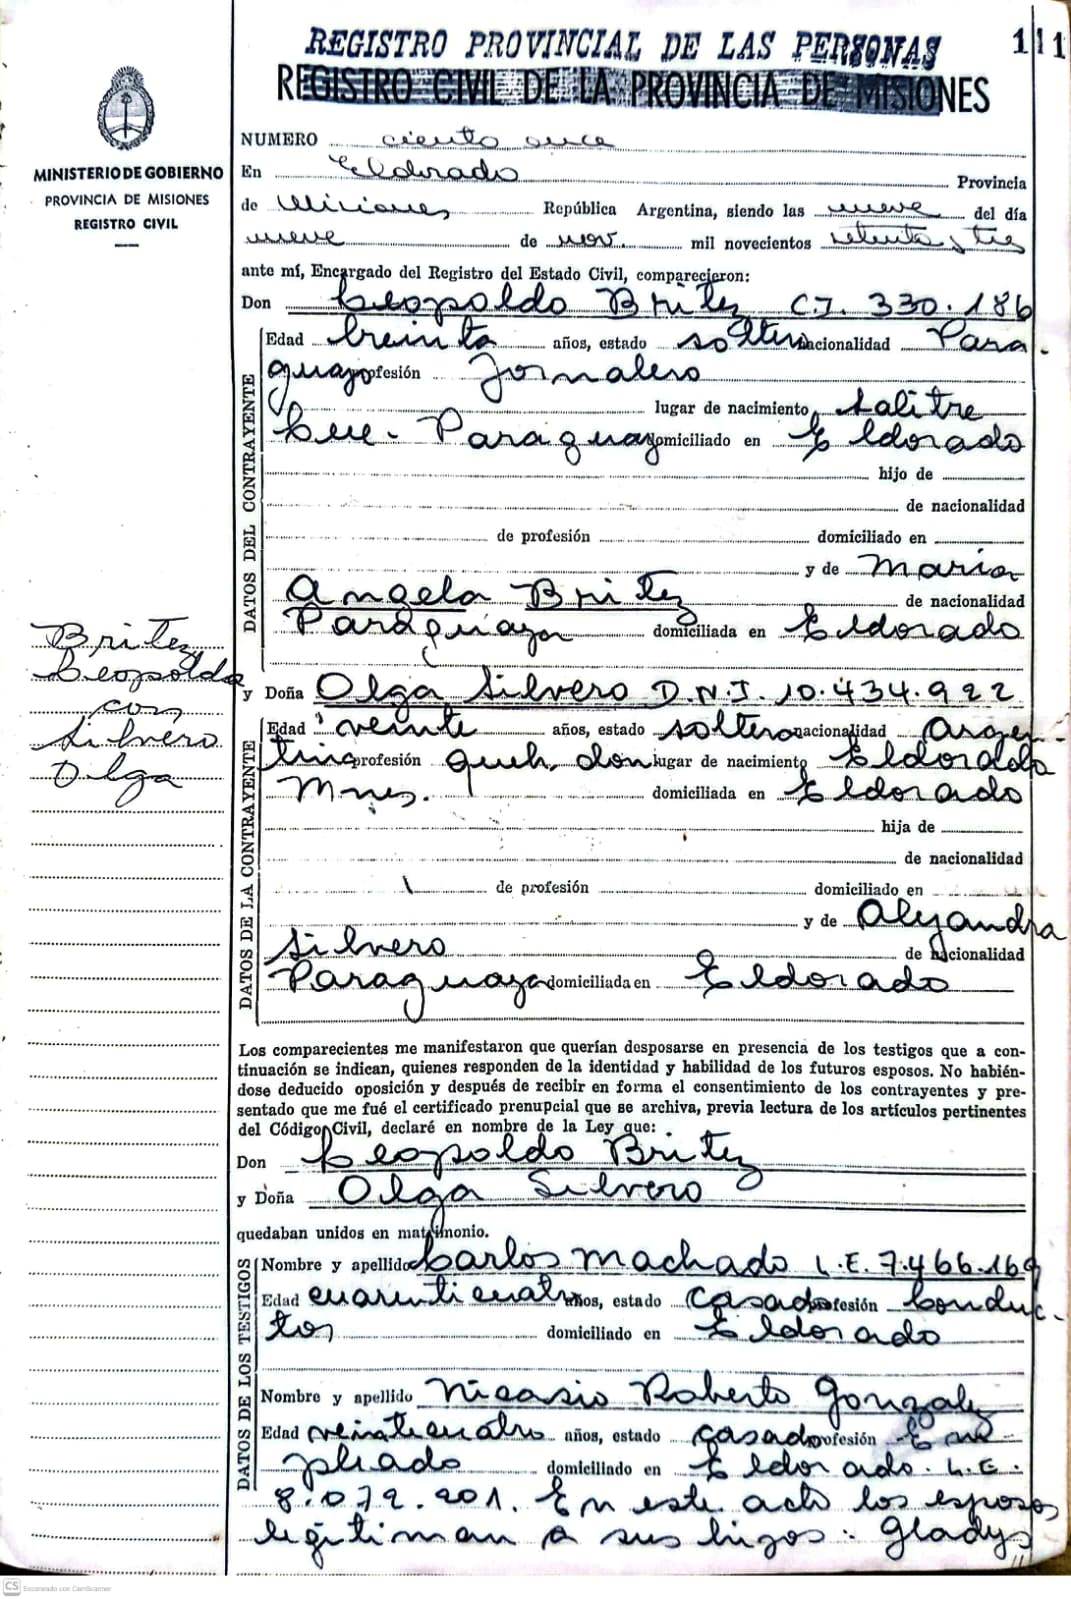 REGISTRO PROVINCIAL DE LAS PERSONAS
111
REGISTRO CIVIL DE LA PROVINCIA DE MISIONES
MINISTERIO DE GOBIERNO
PROVINCIA DE MISIONES
REGISTRO CIVIL
NUMERO ciento once
En Eldorado Provincia
de Misiones República Argentina, siendo las nueve del día
nueve de nov. mil novecientos setenta y tres
ante mí, Encargado del Registro del Estado Civil, comparecieron:
Don Leopoldo Britez C.I. 330.186
DATOS DEL CONTRAYENTE
Edad treinta años, estado soltero nacionalidad Para-
guayo profesión Jornalero
lugar de nacimiento Salitre
Cue- Paraguay domiciliado en Eldorado
hijo de
de nacionalidad
de profesión domiciliado en
y de María
Angela Britez de nacionalidad
Paraguaya domiciliada en Eldorado
Britez
Leopoldo
con
Silvero
Olga
y Doña Olga Silvero D.N.I. 10.434.922
DATOS DE LA CONTRAYENTE
Edad veinte años, estado soltera nacionalidad Argen-
tina profesión queh. dom lugar de nacimiento Eldorado
Mnes. domiciliada en Eldorado
hija de
de nacionalidad
de profesión domiciliado en
y de Alejandra
Silvero de nacionalidad
Paraguaya domiciliada en Eldorado
Los comparecientes me manifestaron que querían desposarse en presencia de los testigos que a con-
tinuación se indican, quienes responden de la identidad y habilidad de los futuros esposos. No habién-
dose deducido oposición y después de recibir en forma el consentimiento de los contrayentes y pre-
sentado que me fué el certificado prenupcial que se archiva, previa lectura de los artículos pertinentes
del Código Civil, declaré en nombre de la Ley que:
Don Leopoldo Britez
y Doña Olga Silvero
quedaban unidos en matrimonio.
DATOS DE LOS TESTIGOS
Nombre y apellido Carlos Machado L.E. 7.466.169
Edad cuarenticuatro años, estado casado profesión Conduc-
tor domiciliado en Eldorado
Nombre y apellido Nicasio Roberto Gonzalez
Edad veinticuatro años, estado casado profesión Em
pleado domiciliado en Eldorado. L.E.
8.072.201. En este acto los esposos
legitiman a sus hijos: Gladys
CS Escaneado con CamScanner